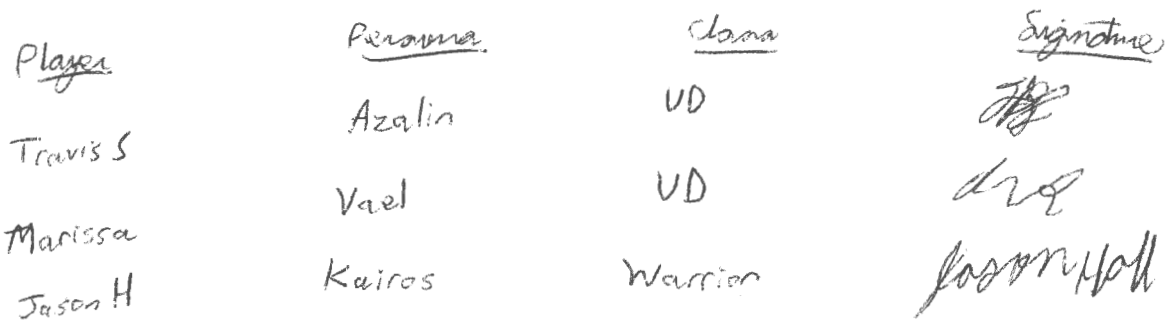 Player Persona Class Signature
Travis S Azalin UD
Marissa Vael UD
Jason H Kairos Warrior Jason Hall